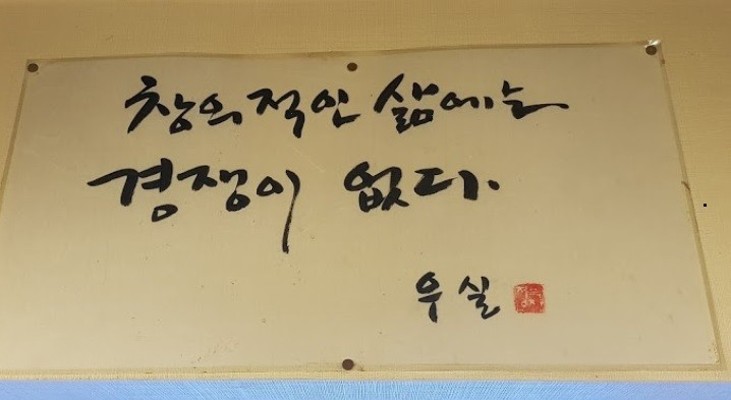 창의적인 삶에는
경쟁이 없다.
우실